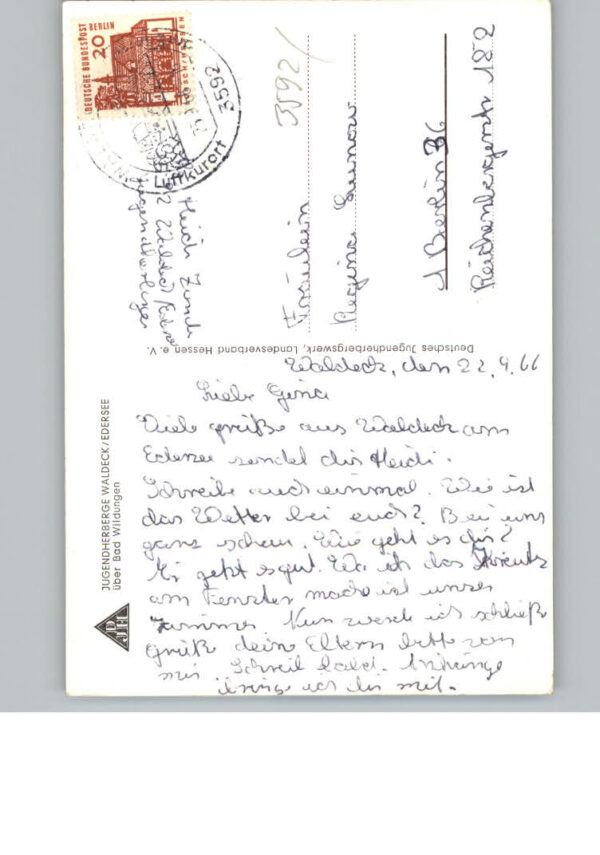 DEUTSCHE BUNDESPOST BERLIN
20
3592
Luftkurort
3592/
Heidi
Waldeck
Jugendherberge
Fräulein
Regina
1 Berlin 36
Reichenbergerstr 182
Deutsches Jugendherbergswerk, Landesverband Hessen e. V.
JUGENDHERBERGE WALDECK/EDERSEE
über Bad Wildungen
DJH
Waldeck, den 22.9.66
Liebe Gina
Viele grüße aus Waldeck am
Edersee sendet dir Heidi.
Schreibe auch einmal. Wie ist
das Wetter bei euch? Bei uns
ganz schön. Wie geht es dir?
Mir geht es gut. Wo ich das Kreutz
am Fenster mache ist unser
Zimmer Nun werde ich schließ
grüß deine Eltern bitte von
mir Schreib bald. Anhänge
bringe ich dir mit.